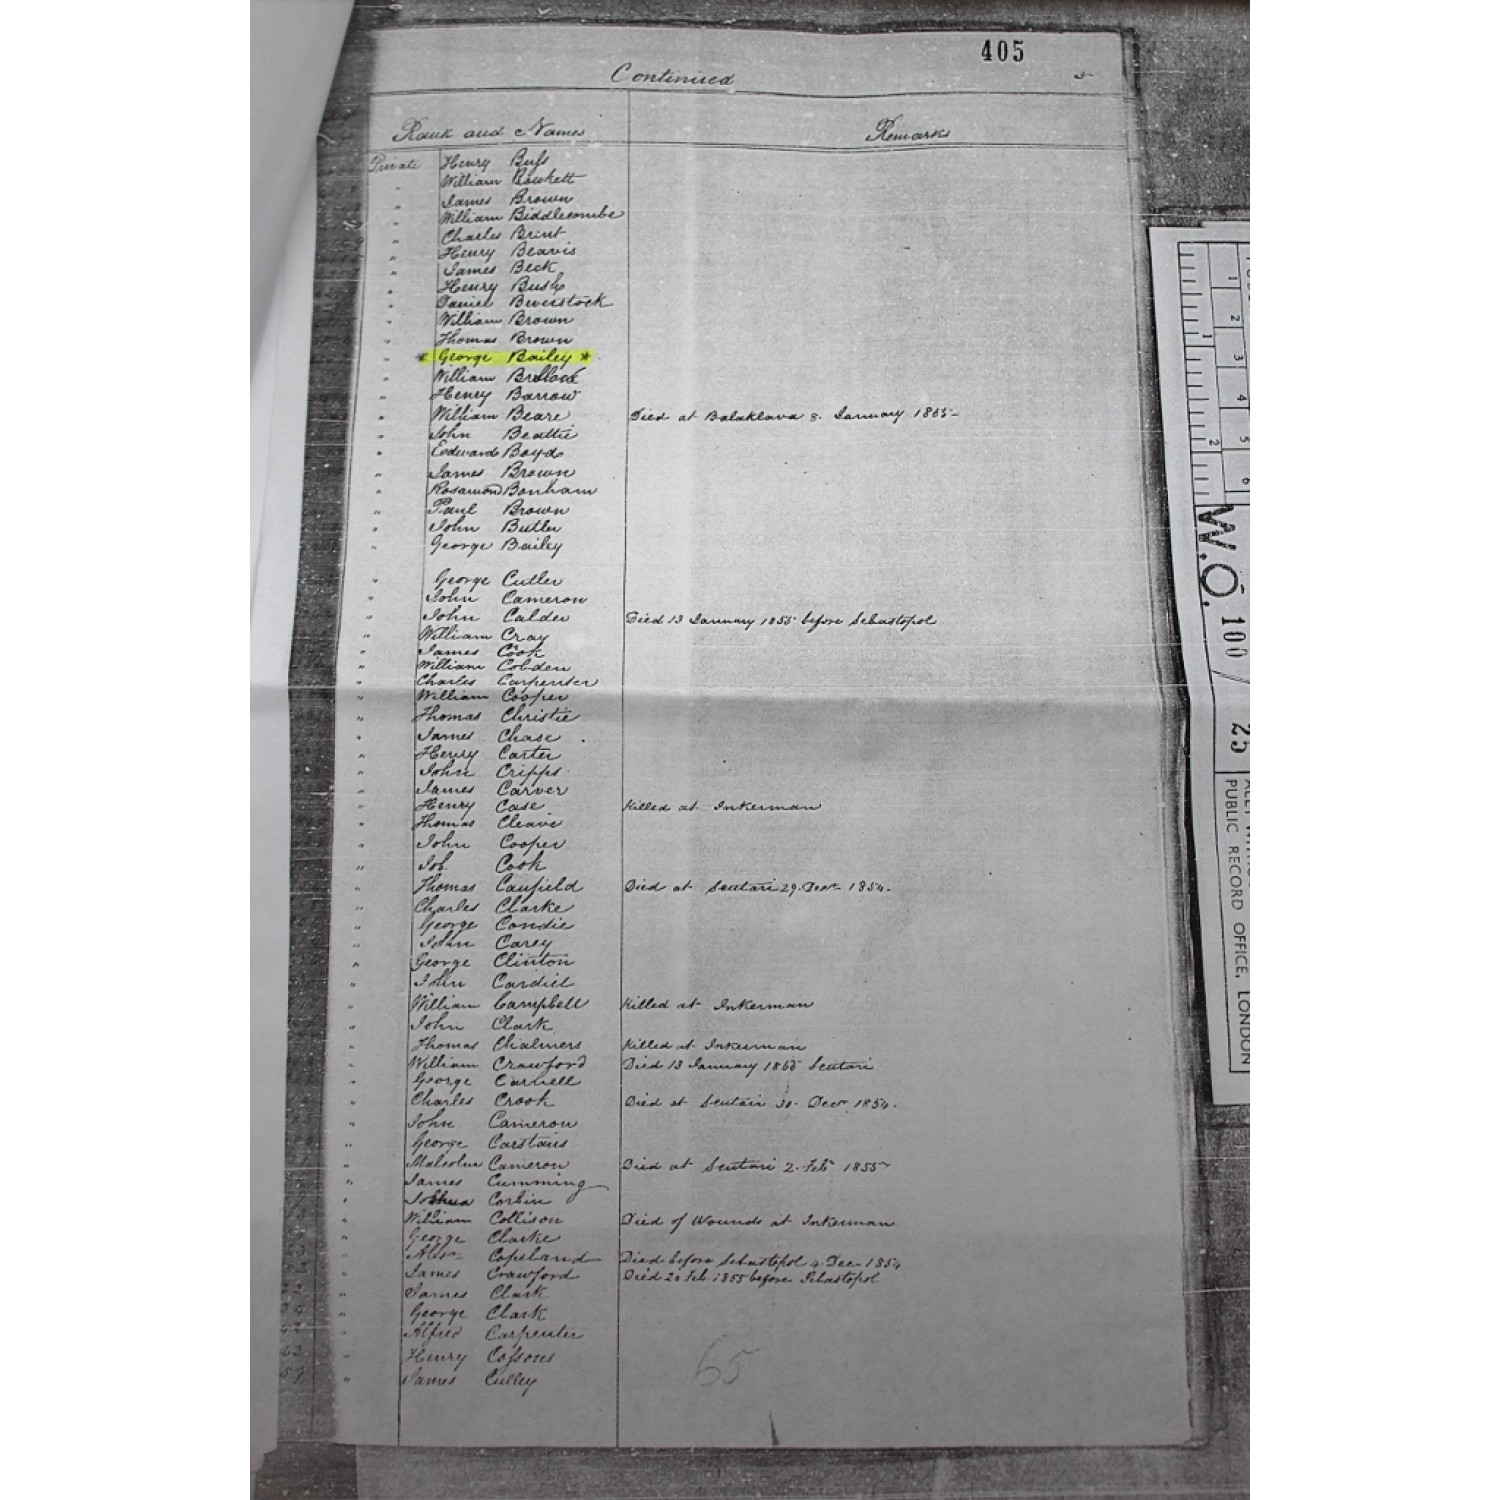 405
Continued
5
Rank and Names Remarks
Private Henry Buss
" William Bowkett
" James Brown
" William Biddlecombe
" Charles Brint
" Henry Beavis
" James Beck
" Henry Bush
" Daniel Beverstock
" William Brown
" Thomas Brown
" * George Bailey *
" William
" Henry Barrow
" William Beare Died at Balaklava 8. January 1855
" John Beattie
" Edward Boyd
" James Brown
" Rosamond Bonham
" Paul Brown
" John Butler
" George Bailey
" George Cutler
" John Cameron
" John Calder Died 13 January 1855 before Sebastopol
" William Cray
" James Cook
" William Cobden
" Charles Carpenter
" William Cooper
" Thomas Christie
" James Chase
" Henry Carter
" John Cripps
" James Carver
" Henry Case Killed at Inkerman
" Thomas Cleave
" John Cooper
" Job Cook
" Thomas Caufield Died at Scutari 29. Decr 1854
" Charles Clarke
" George Condie
" John Carey
" George Clinton
" John Cardiel
" William Campbell Killed at Inkerman
" John Clark
" Thomas Chalmers Killed at Inkerman
" William Crawford Died 13 January 1855 Scutari
" George Carnell
" Charles Crook Died at Scutari 30. Decr 1854.
" John Cameron
" George Carstairs
" Malcolm Cameron Died at Scutari 2. Feby 1855
" James Cumming
" Joshua Corbin
" William Collison Died of Wounds at Inkerman
" George Clarke
" Alexr Copeland Died before Sebastopol 4. Dec. 1854
" James Crawford Died 20 Feb. 1855 before Sebastopol
" James Clark
" George Clark
" Alfred Carpenter
" Henry Cossons
" James Culley
65
1 2 3 4 5 6
1 2
W.O. 100 / 25
PUBLIC RECORD OFFICE, LONDON